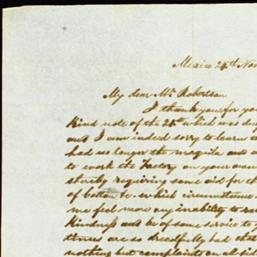 Mexico 24th Nov
My dear Mr Robertson
I thank you for your
Kind note of the 21st which was du
and I am indeed sorry to learn
had no longer the
to work the Factory on your own
thereby requiring some aid for
of cotton to which circumstance
me feel more my inability to
Kindness and be of some service to y
times are so dreadfully bad
nothing but complaints on all sid